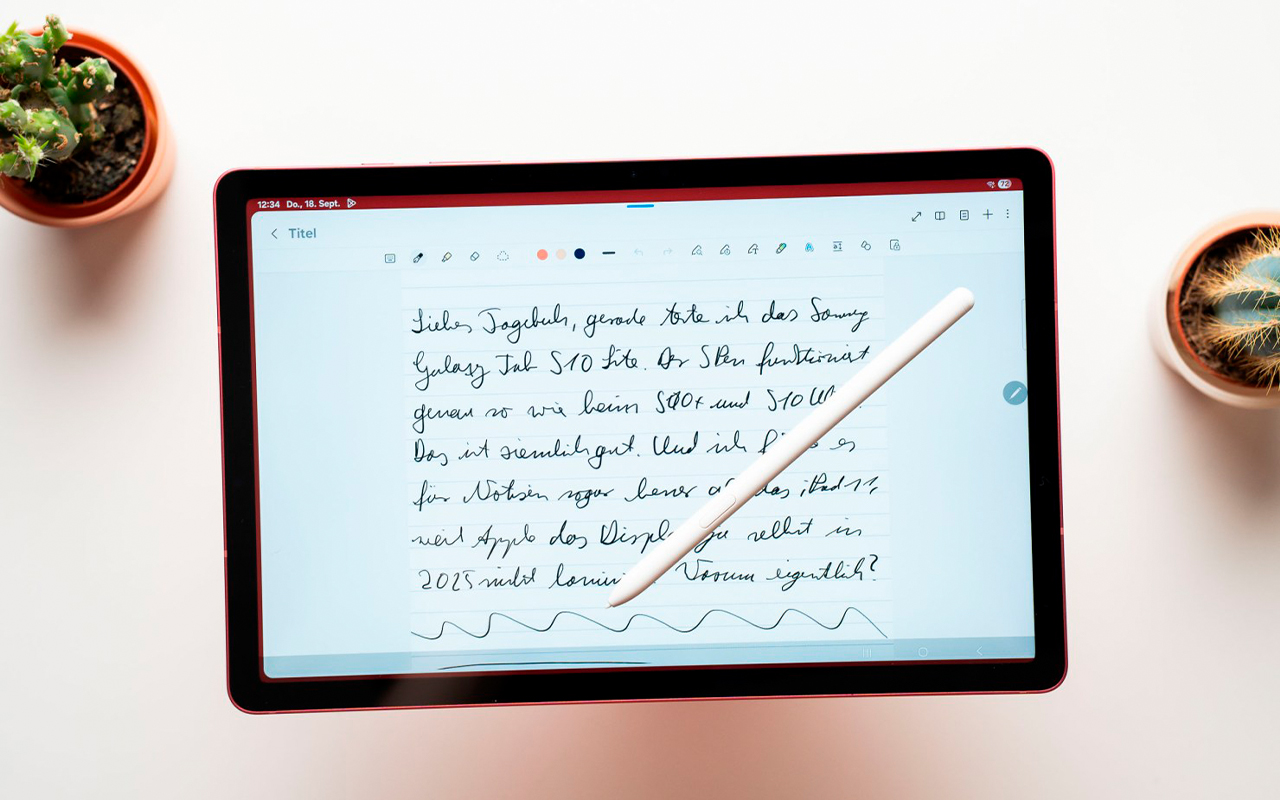 12:34 Do., 18. Sept.
72
Titel
Liebes Tagebuch, gerade teste ich das Samsung
Galaxy Tab S10 Lite. Der S Pen funktioniert
genau so wie beim S10+ und S10
Das ist ziemlich gut. Und ich es
für Notizen sogar besser das iPad 11,
weil Apple das selbst in
2025 nicht Warum eigentlich?